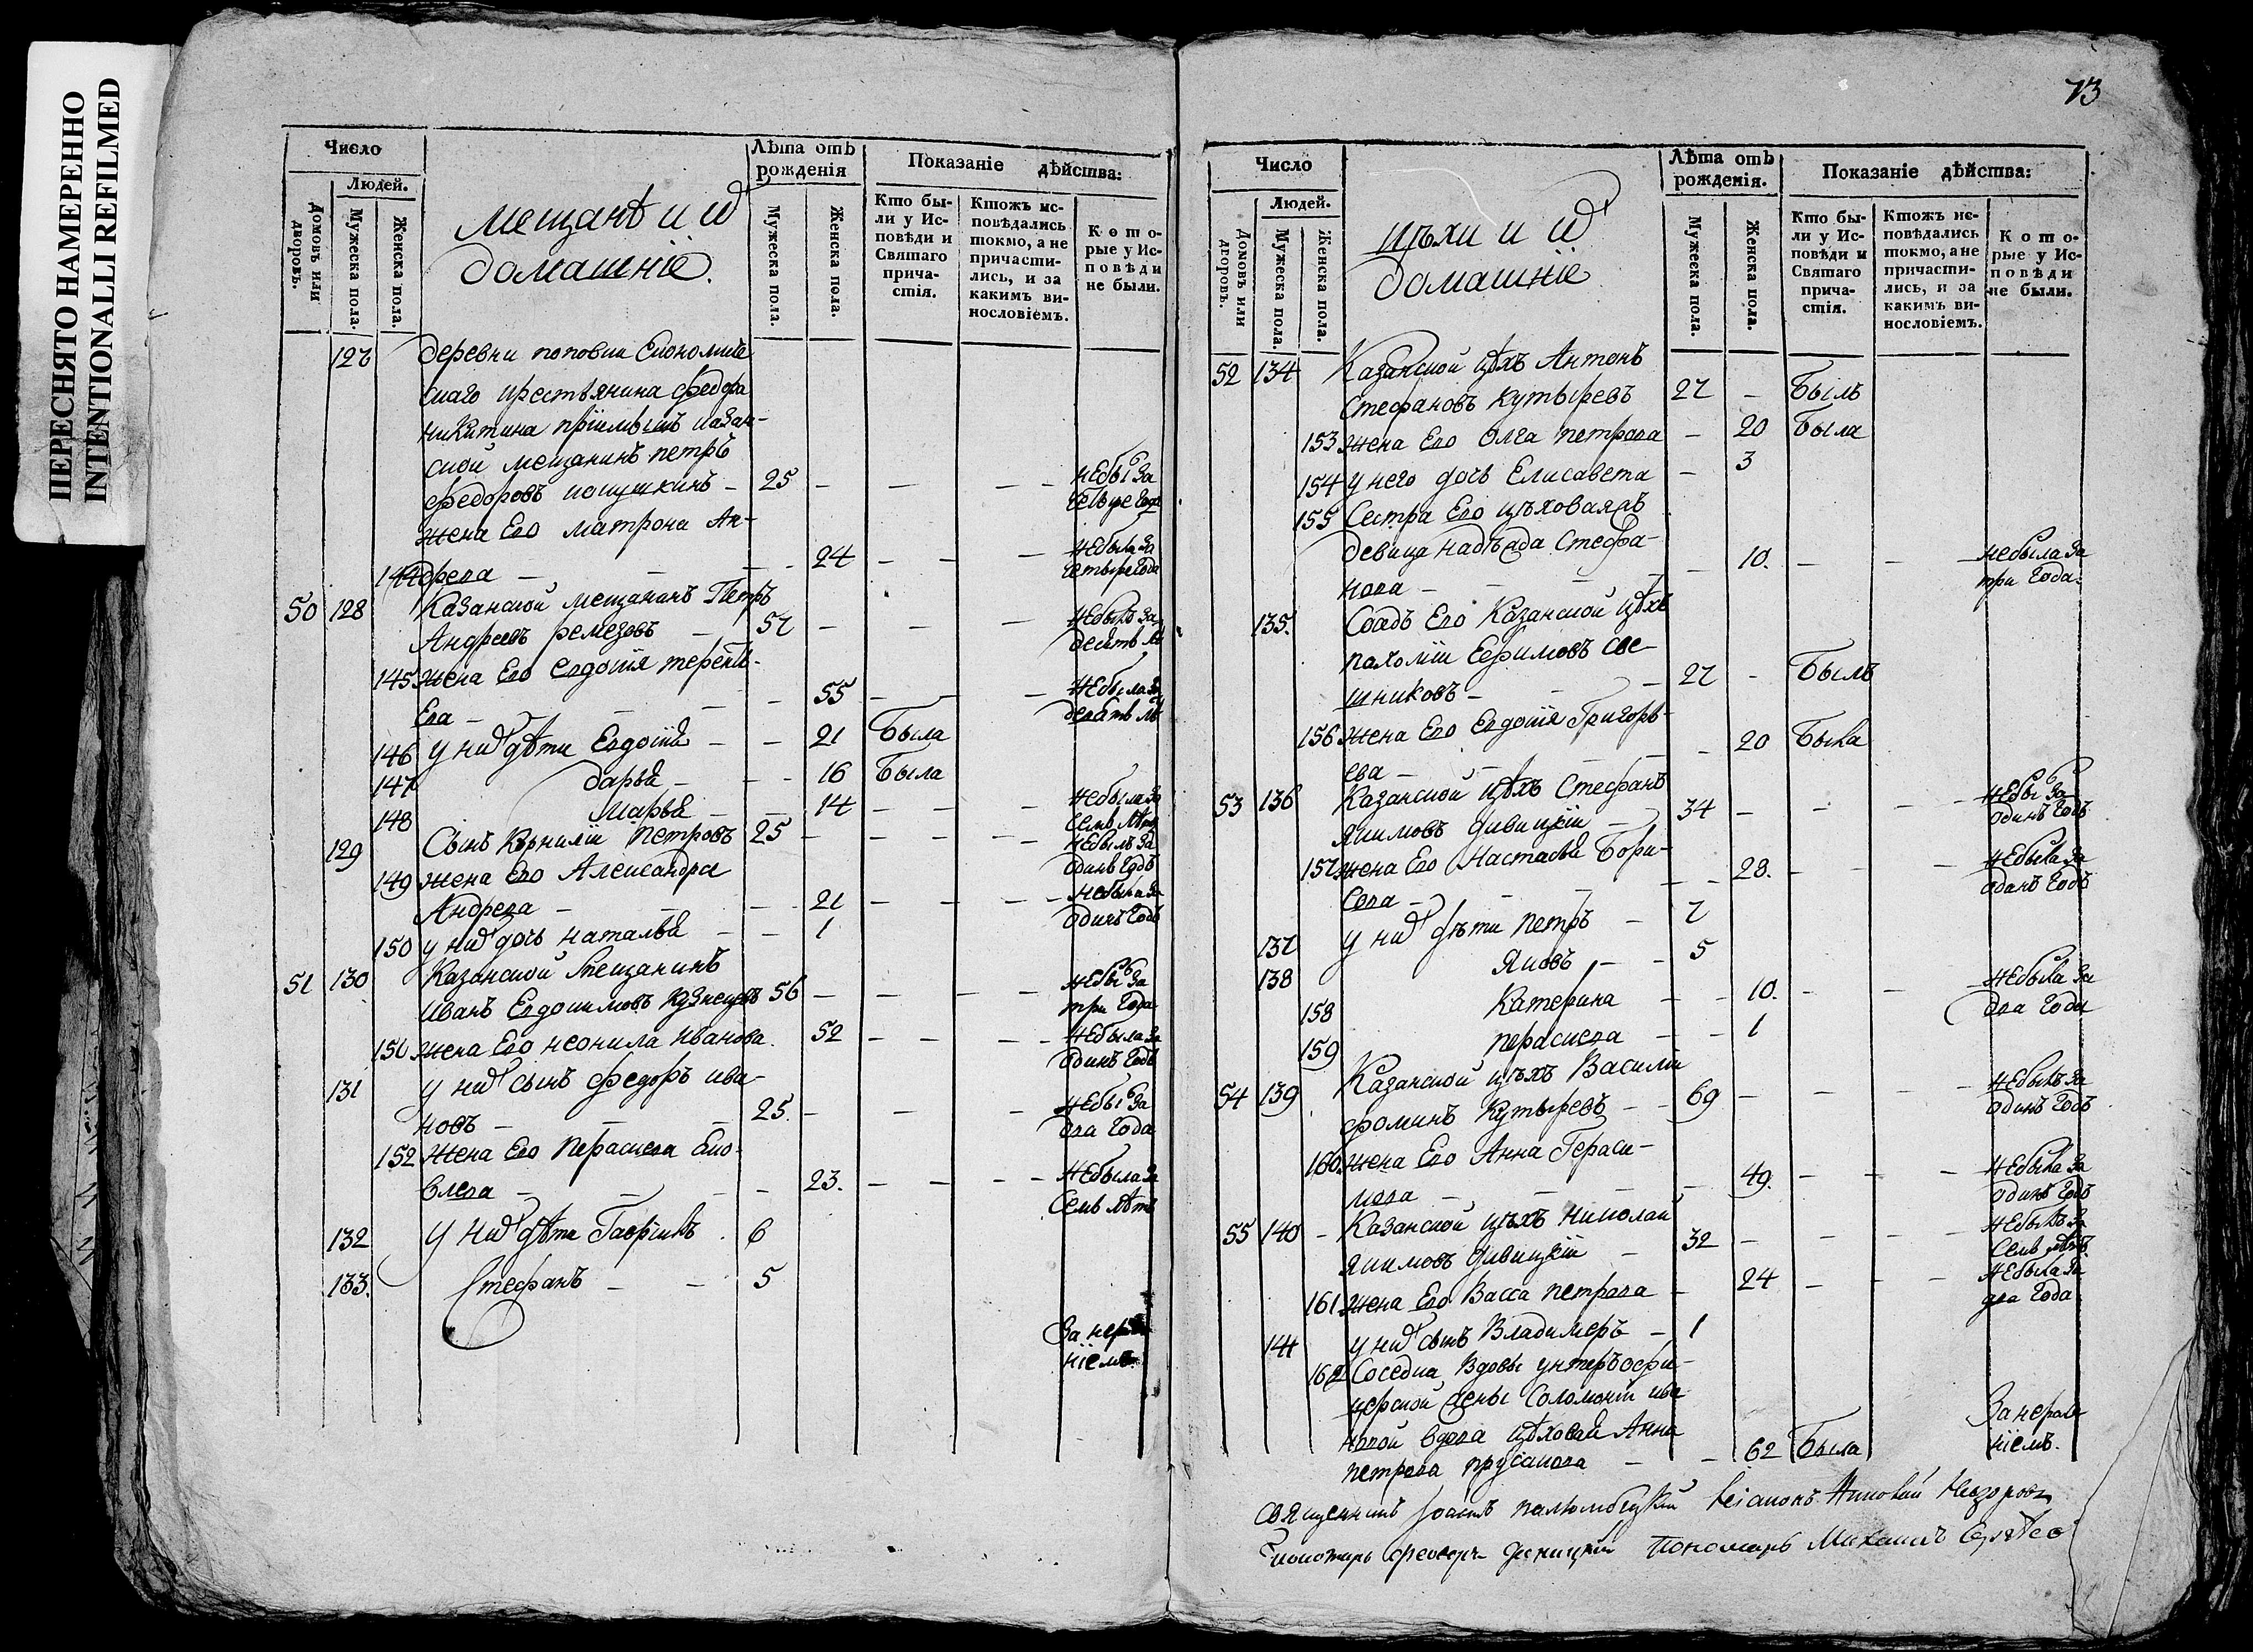 ПЕРЕСНЯТО НАМЕРЕННО
INTENTIONALLI REFILMED
Число
Людей.
Домовъ или дворовъ.
Мужеска пола.
Женска пола.
мещанѣ и их
домашнiе.
Лѣта отъ рожденiя
Мужеска пола.
Женска пола.
Показанiе дѣйства:
Кто были у Исповѣди и Святаго причастiя.
Ктожъ исповѣдались токмо, а не причастились, и за какимъ винословiемъ.
Которые у Исповѣди не были.
127 деревни поповки Економиче
скаго крестьянина федора
никитина прiимышъ казан-
ской мещанинъ петръ
федоровъ - 25 - - - - небы за
четыре года
жена Его матрона Ан-
144 дреева - - - - 24 - - - небыла за
четыре года
50 128 Казанской мещанинъ Петръ
Андреевъ ремезовъ - 57 - - - небылъ за
десять лѣ
145 жена Его Евдокiя терентъ-
Ева - - - - 55 - - - небыла за
десять лѣ
146 у них дѣти Евдокiя - - 21 Была
147 дарья - - - 16 Была
148 марья - - 14 - - - небыла за
семь лѣтъ
129 Сынъ Корнилiй Петровъ 25 - - - - небылъ за
одинъ годъ
149 жена Его Александра
Андреева - - - - 21 - - - - небыла за
одинъ годъ
150 у них дочь наталья - - 1
51 130 Казанской мещанинъ
Иванъ Евдокимовъ кузнецовъ 56 - - - - небы за
три года
151 жена Его неонила иванова. 52 - - - - небыла за
одинъ годъ
131 у них сынъ федоръ ива-
новъ - - - 25. - - - небы за
два года
152 жена Его Параскева Яко-
влева - - - - 23. - - - - небыла за
семь лѣтъ
132 у них дѣти Гаврiилъ . 6
133. Стефанъ - - 5
За нерадѣ
нiемъ
73
Число
Людей.
Домовъ или дворовъ.
Мужеска пола.
Женска пола.
цѣхи и их
домашнiе
Лѣта отъ рожденiя.
Мужеска пола.
Женска пола.
Показанiе дѣйства:
Кто были у Исповѣди и Святаго причастiя.
Ктожъ исповѣдались токмо, а не причастились, и за какимъ винословiемъ.
Которые у Исповѣди не были.
52 134 Казанской цѣхъ Антонъ
Стефановъ Кутыревъ 27 - Былъ
153 жена Его Олга петрова - 20 Была
154 у него дочь Елисавета - 3
155 Сестра Его цѣховая
девица надежда Стефа-
нова - - - - 10. - - - небыла за
три года.
135. Его Казанской цѣхъ
пахомiй Ефимовъ Све-
шниковъ - - - 27 - Былъ
156 жена Его Евдокiя Григорь-
ева - - - - 20 Была
53 136 Казанской цѣхъ Стефанъ
Якимовъ дивицкiй - 34 - - - - небы за
одинъ годъ
157 жена Его Настасья Бори-
сова - - - - 28. - - - небыла за
одинъ годъ
137 у них дѣти Петръ - 7
138 Яковъ - - 5
158 Катерина - - 10. - - - небыла за
два года
159 параскева - - 1
54 139 Казанской цѣхъ Василiй
фоминъ Кутыревъ - - 69 - - - - небылъ за
одинъ годъ
160 жена Его Анна Гераси-
мова - - - - 49. - - - небыла за
одинъ годъ
55 140 - Казанской цѣхъ николай
Якимовъ дивицкiй - 32 - - - - небылъ за
семь лѣтъ.
161 жена Его Васса петрова - 24 - - - небыла за
два года
141 у них сынъ Владимеръ - 1
162 Соседка вдовы унтеръофи-
церской жены Соломонiи ива
новой вдова цѣховая Анна
петрова - - 62 Была
За нерадѣ
нiемъ.
священникъ Iоаннъ
Пономарь Михаилъ